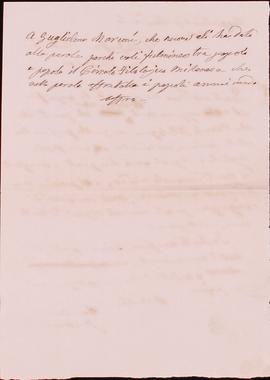 A Guglielmo Marconi, che nuove ali ha dato
alla parola, perché voli fulminea tra popolo
e popolo il Circolo Filologico Milanese che
nella parola affratella i popoli
offre